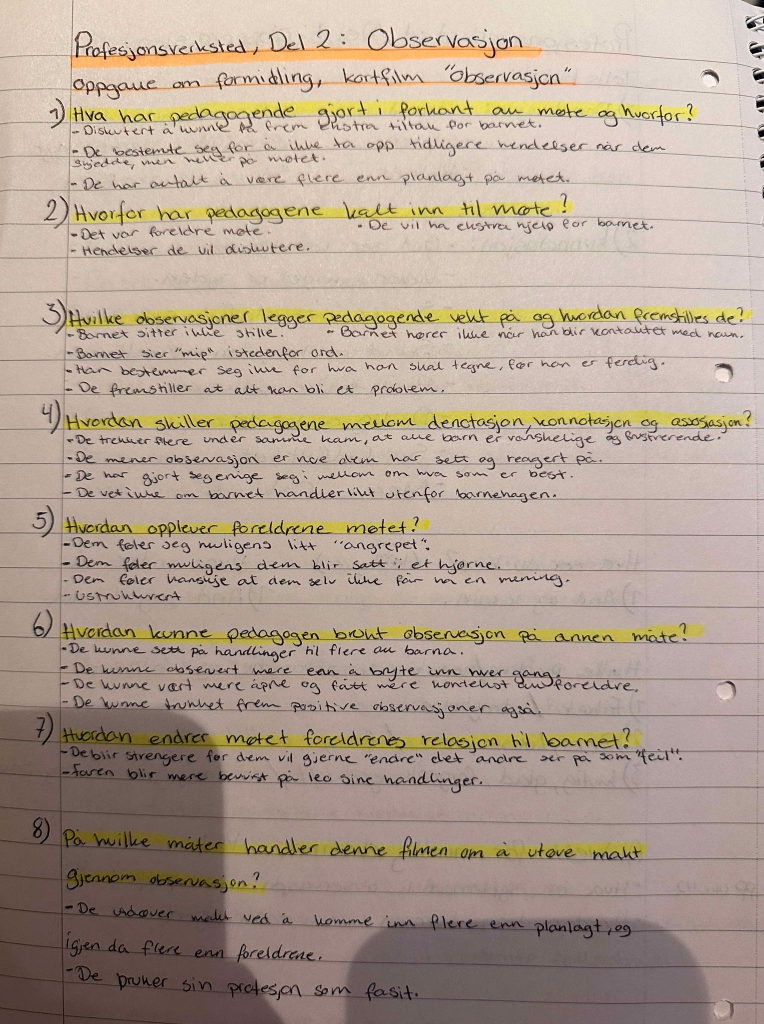 Profesjonsverksted, Del 2: Observasjon
oppgave om formidling, kortfilm "Observasjon"
1) Hva har pedagogende gjort i forkant av møte og hvorfor?
- Diskutert å kunne få frem ekstra tiltak for barnet.
- De bestemte seg for å ikke ta opp tidligere hendelser når dem
skjedde, men heller på møtet.
- De har avtalt å være flere enn planlagt på møtet.
2) Hvorfor har pedagogene kalt inn til møte?
- Det var foreldre møte. - De vil ha ekstra hjelp for barnet.
- Hendelser de vil diskutere.
3) Hvilke observasjoner legger pedagogende vekt på og hvordan fremstilles de?
- Barnet sitter ikke stille. - Barnet hører ikke når han blir kontaktet med navn.
- Barnet sier "mip" istedenfor ord.
- Han bestemmer seg ikke for hva han skal tegne, før han er ferdig.
- De fremstiller at alt kan bli et problem.
4) Hvordan skiller pedagogene mellom denotasjon, konnotasjon og assosasjon?
- De trekker flere under samme kam, at alle barn er vanskelige og frustrerende.
- De mener observasjon er noe dem har sett og reagert på.
- De har gjort seg enige seg i mellom om hva som er best.
- De vet ikke om barnet handler likt utenfor barnehagen.
5) Hvordan opplever foreldrene møtet?
- Dem føler seg muligens litt "angrepet".
- Dem føler muligens dem blir satt i et hjørne.
- Dem føler kanskje at dem selv ikke får ha en mening.
- Ustrukturert
6) Hvordan kunne pedagogen brukt observasjon på annen måte?
- De kunne sett på handlinger til flere av barna.
- De kunne observert mere enn å bryte inn hver gang.
- De kunne vært mere åpne og fått mere kontekst av foreldre.
- De kunne trukket frem positive observasjoner også.
7) Hvordan endrer møtet foreldrenes relasjon til barnet?
- De blir strengere for dem vil gjerne "endre" det andre ser på som "feil".
- faren blir mere bevisst på leo sine handlinger.
8) På hvilke måter handler denne filmen om å utøve makt
gjennom observasjon?
- De utøver makt ved å komme inn flere enn planlagt, og
igjen da flere enn foreldrene.
- De bruker sin profesjon som fasit.